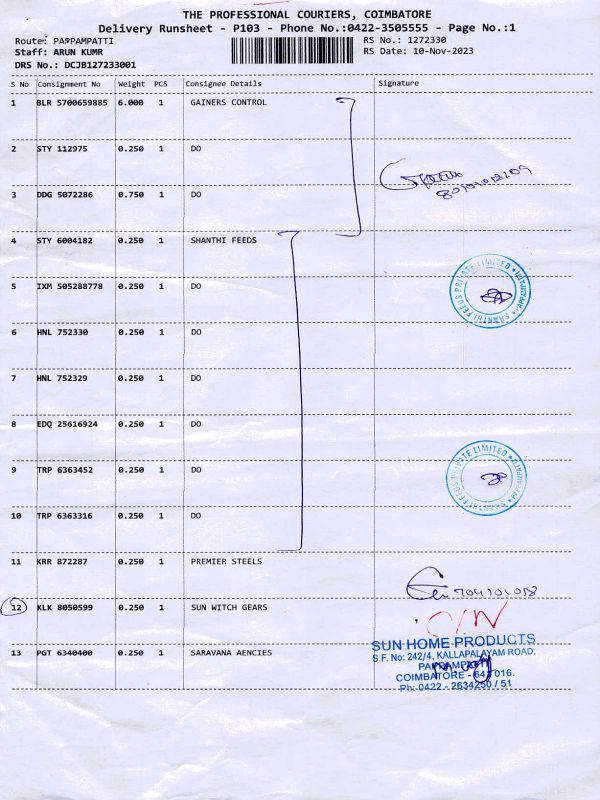 THE PROFESSIONAL COURIERS, COIMBATORE
Delivery Runsheet - P103 - Phone No.:0422-3505555 - Page No.:1
Route: PAPPAMPATTI
RS No.: 1272330
Staff: ARUN KUMR
RS Date: 10-Nov-2023
DRS No.: DCJB127233001
S No Consignment No Weight PCS Consignee Details Signature
1 BLR 5700659885 6.000 1 GAINERS CONTROL
2 STY 112975 0.250 1 DO
3 DDG 5072286 0.750 1 DO
4 STY 6004182 0.250 1 SHANTHI FEEDS
5 IXM 505288778 0.250 1 DO
SHANTHI FEEDS PRIVATE LIMITED * PAPPAMPATTI *
6 HNL 752330 0.250 1 DO
7 HNL 752329 0.250 1 DO
8 EDQ 25616924 0.250 1 DO
9 TRP 6363452 0.250 1 DO
SHANTHI FEEDS PRIVATE LIMITED * PAPPAMPATTI *
10 TRP 6363316 0.250 1 DO
11 KRR 872287 0.250 1 PREMIER STEELS
12 KLK 8050599 0.250 1 SUN WITCH GEARS
C/N
13 PGT 6340400 0.250 1 SARAVANA AENCIES
SUN HOME PRODUCTS
S.F. No: 242/4, KALLAPALAYAM ROAD,
PAPPAMPATTI
COIMBATORE - 641 016.
Ph: 0422 - 2634250 / 51